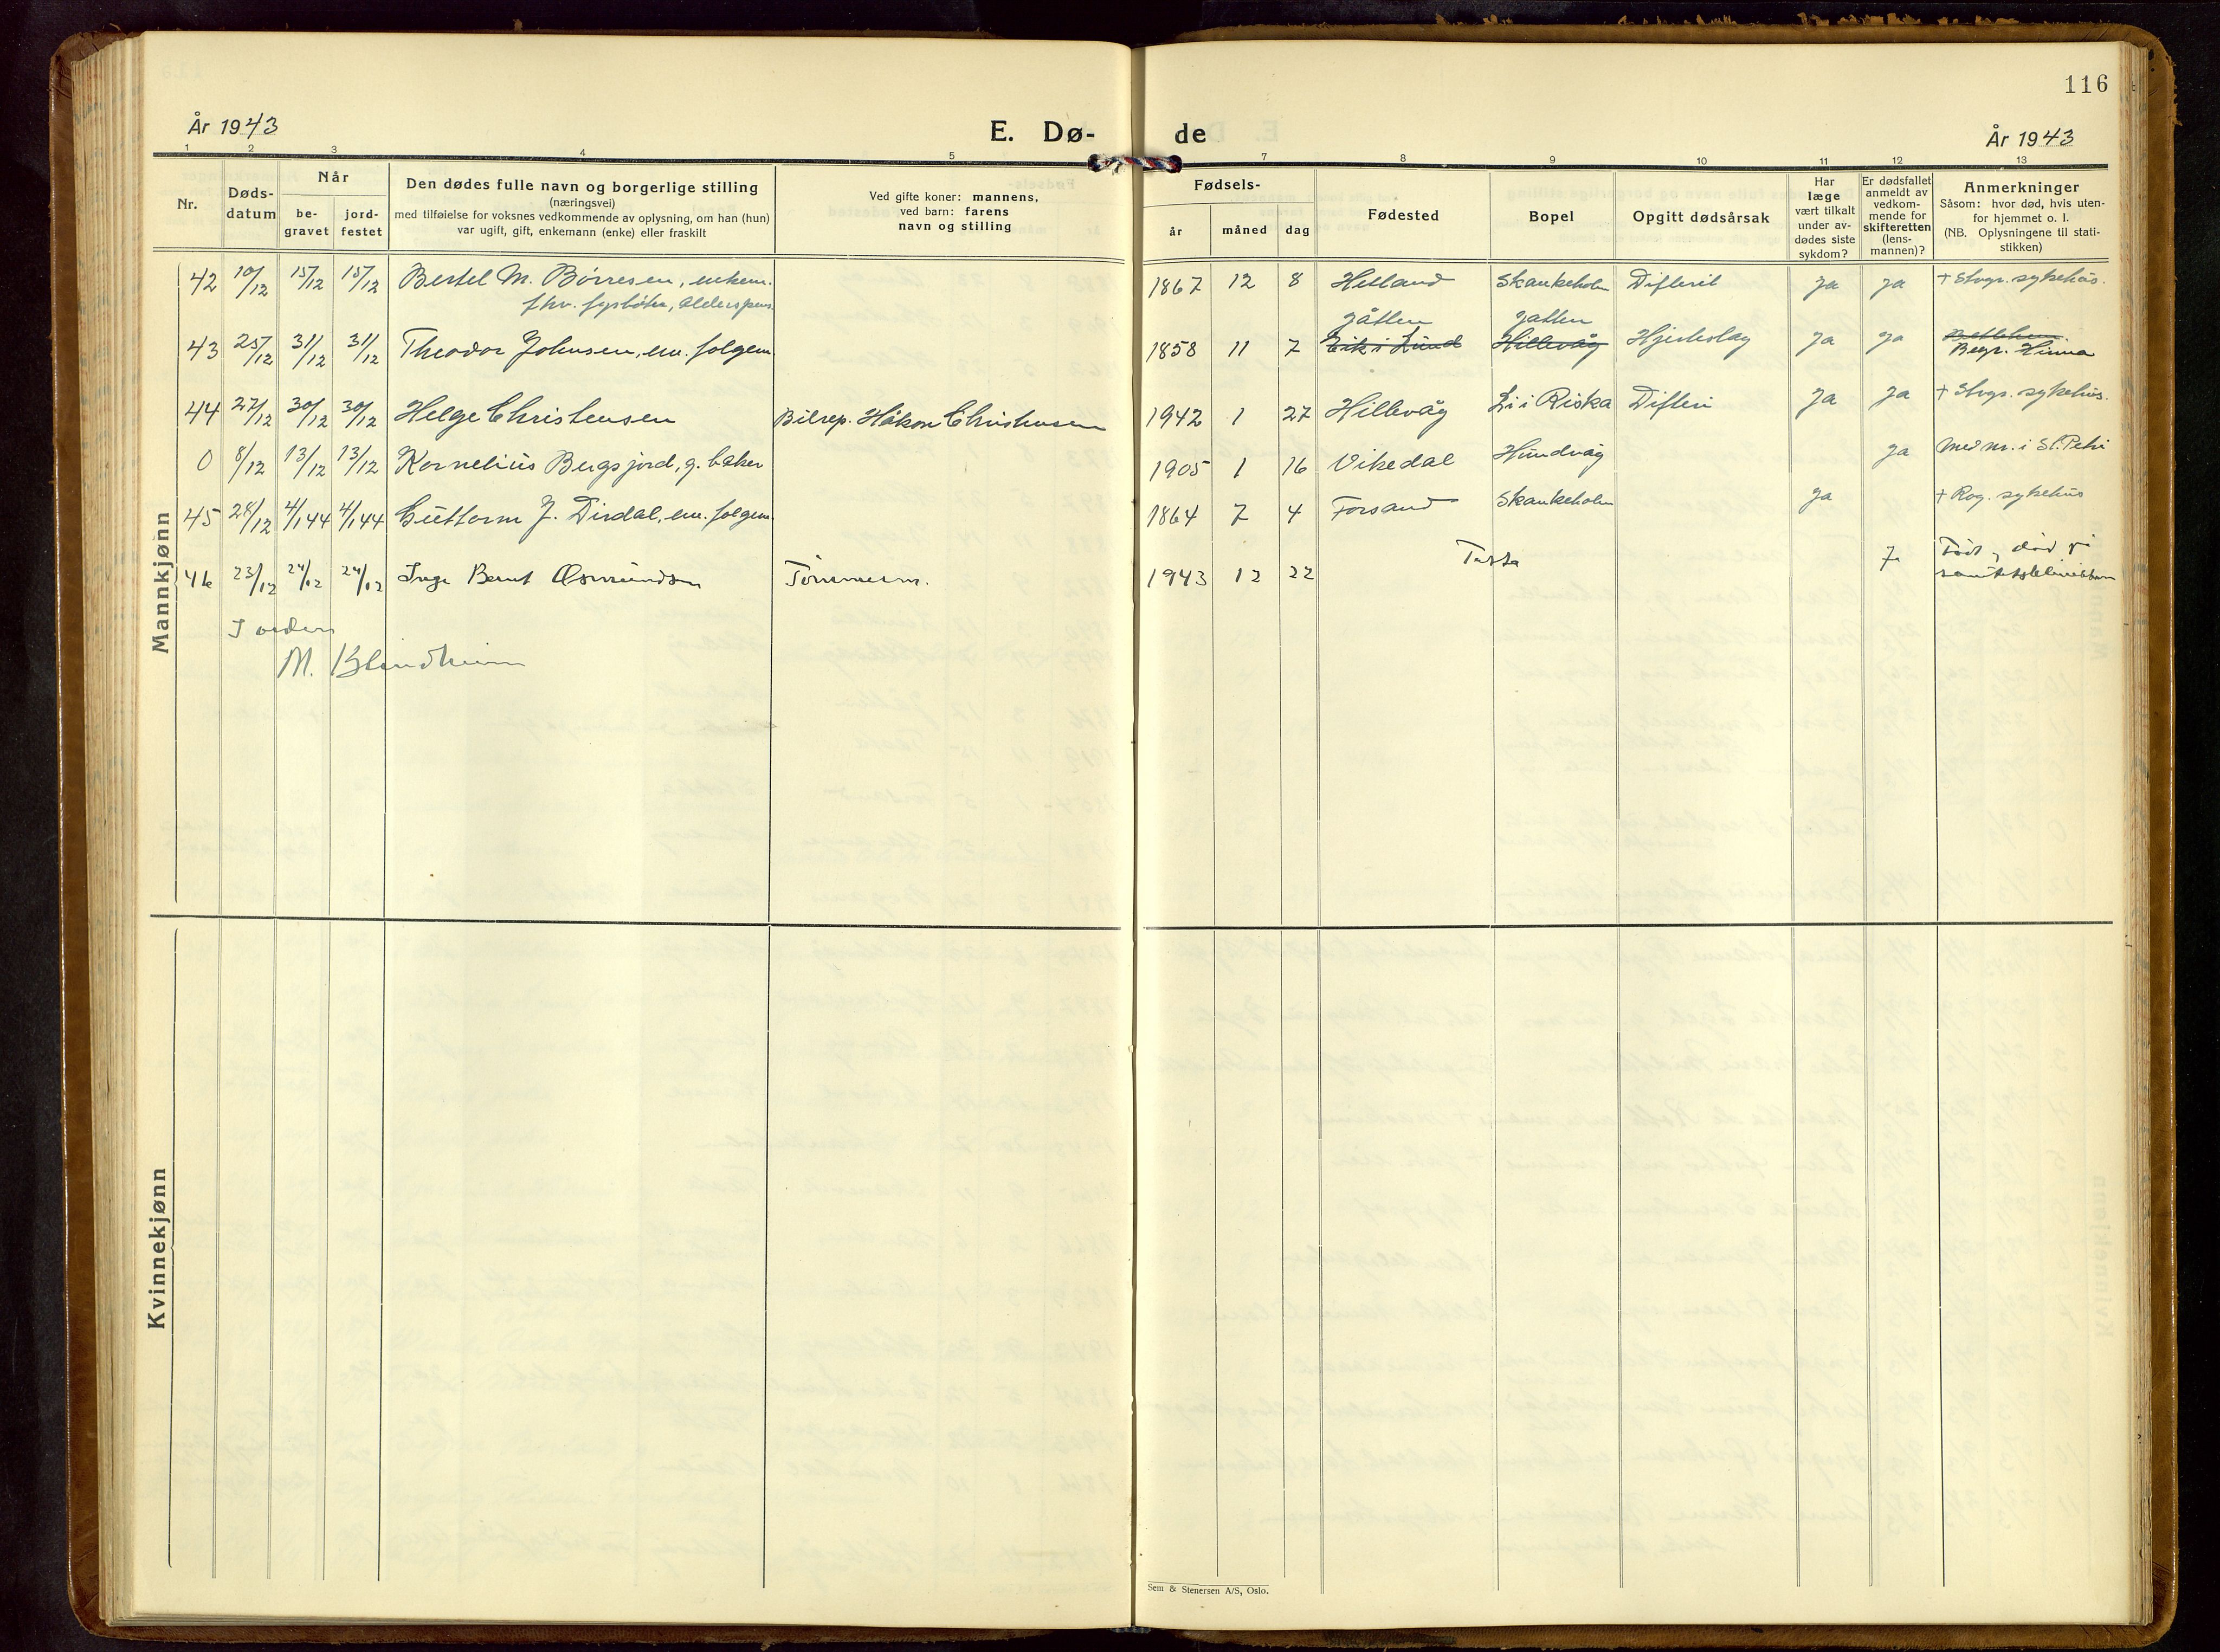 116
År 1943
E. Dø-
de
År 1943
1 2 3 4 5 7 8 9 10 11 12 13
Nr.
Døds-
datum
Når
be-
gravet
jord-
festet
Den dødes fulle navn og borgerlige stilling
(næringsvei)
med tilføielse for voksnes vedkommende av oplysning, om han (hun)
var ugift, gift, enkemann (enke) eller fraskilt
Ved gifte koner: mannens,
ved barn: farens
navn og stilling
Fødsels-
år måned dag
Fødested
Bopel
Opgitt dødsårsak
Har
læge
vært tilkalt
under av-
dødes siste
sykdom?
Er dødsfallet
anmeldt av
vedkom-
mende for
skifteretten
(lens-
mannen)?
Anmerkninger
Såsom: hvor død, hvis uten-
for hjemmet o. l.
(NB. Oplysningene til stati-
stikken)
Mannkjønn
42 10/12 15/12 15/12 Bertel M. Børresen, enkem. 1867 12 8 Helland Skankeholm Difterit Ja Ja + Stvgr. sykehus.
fhv. fyrbøter, alderspens.
Gåtten Jåtten
43 25/12 31/12 31/12 Theodor Johnsen, em. folgem. 1858 11 7 Eik i Lund Hillevåg Hjerteslag Ja Ja
Begr. Hinna
44 27/12 30/12 30/12 Helge Christensen Bilrep. Håkon Christensen 1942 1 27 Hillevåg Li i Riska Difteri Ja Ja + Stvgr. sykehus.
0 8/12 13/12 13/12 Kornelius Bergsjord, g. baker 1905 1 16 Vikedal Hundvåg Ja Med nr. i St. Petri
45 28/12 4/1 44 4/1 44 Guttorm J. Dirdal, em. folgem. 1864 7 4 Forsand Skankeholm Ja + Rog. sykehus
46 23/12 24/12 24/12 Inge Bernt Osmundsen Tømmerm. 1943 12 22 Tasta J. Født og død på
sanitetsklinikken
I orden
M. Blindheim
Kvinnekjønn
Sem & Stenersen A/S, Oslo.